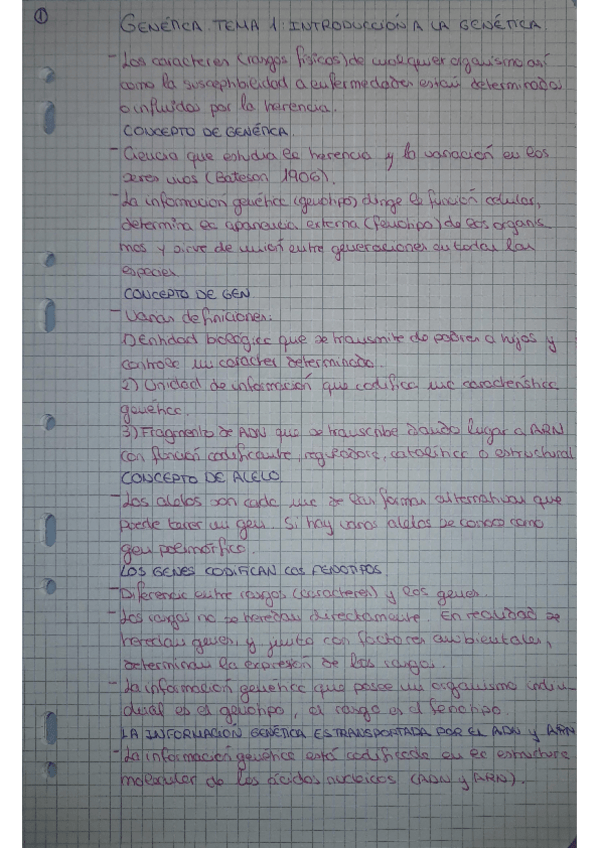 ①
GENÉTICA. TEMA 1: INTRODUCCIÓN A LA GENÉTICA.
- Los caracteres (rasgos físicos) de cualquier organismo así
como la susceptibilidad a enfermedades están determinados
o influidos por la herencia.
CONCEPTO DE GENÉTICA.
- Ciencia que estudia la herencia y la variación en los
seres vivos (Bateson 1906).
- La información genética (genotipo) dirige la función celular,
determina la apariencia externa (fenotipo) de los organis
mos y sirve de unión entre generaciones en todas las
especies.
CONCEPTO DE GEN
- Varias definiciones:
1) Entidad biológica que se transmite de padres a hijos y
controla un carácter determinado.
2) Unidad de información que codifica una característica
genética.
3) Fragmento de ADN que se transcribe dando lugar a ARN
con función codificante, reguladora, catalítica o estructural
CONCEPTO DE ALELO
- Los alelos son cada una de las formas alternativas que
puede tener un gen. Si hay varios alelos se conoce como
gen polimórfico.
LOS GENES CODIFICAN LOS FENOTIPOS
- Diferencia entre rasgos (caracteres) y los genes.
- Los rasgos no se heredan directamente. En realidad se
heredan genes, y junto con factores ambientales,
determinan la expresión de los rasgos.
- La información genética que posee un organismo indivi-
dual es el genotipo, el rasgo es el fenotipo.
LA INFORMACIÓN GENÉTICA ES TRANSPORTADA POR EL ADN y ARN
- La información genética está codificada en la estructura
molecular de los ácidos nucleicos (ADN y ARN).